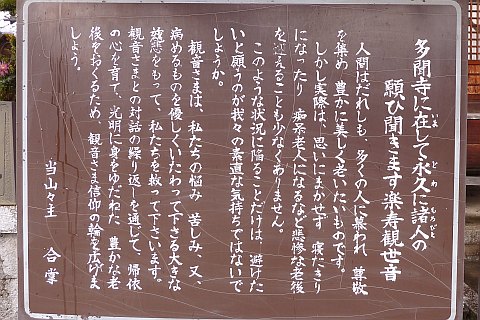 多聞寺に在して永久に諸人の
願ひ聞きます楽寿観世音
人間はだれしも、多くの人に慕われ、尊敬
を集め、豊かに美しく老いたいものです。
しかし実際は、思いにまかせず、寝たきり
になったり、痴呆老人になるなど悲惨な老後
を迎えることも少なくありません。
このような状況に陥ることだけは、避けた
いと願うのが我々の素直な気持ちではないで
しょうか。
観音さまは、私たちの悩み、苦しみ、又、
病めるものを優しくいたわって下さる大きな
慈悲をもって、私たちを救って下さいます。
観音さまとの対話の繰り返しを通じて、帰依
の心を育て、光明に身をゆだねた、豊かな老
後をおくるため、観音さま信仰の輪を広げま
しょう。
当山々主 合掌